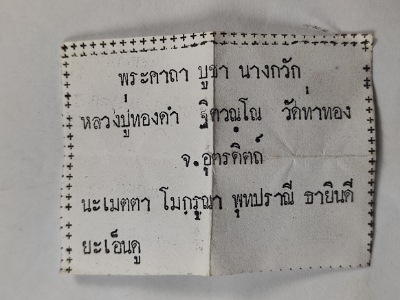 พระคาถา บูชา นางกวัก
หลวงปู่ทองดำ ฐิตวณฺโณ วัดท่าทอง
จ.อุตรดิตถ์
นะเมตตา โมกรุณา พุทปราณี ธายินดี
ยะเอ็นดู